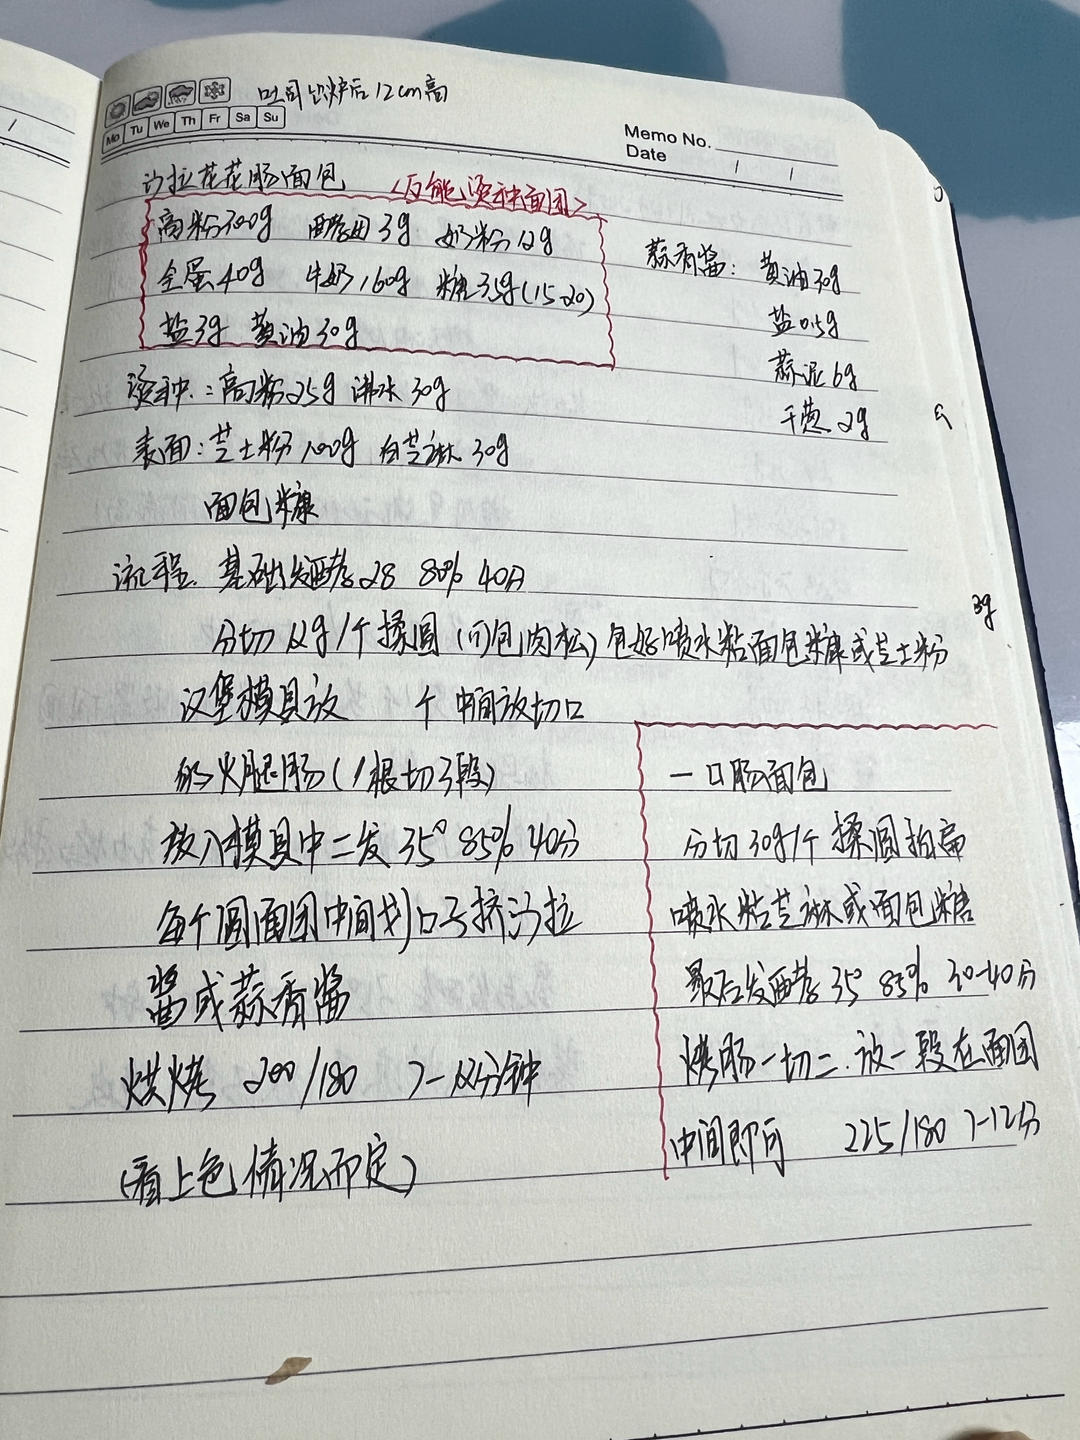 吐司出炉后12cm高
Mo Tu We Th Fr Sa Su
Memo No.
Date / /
沙拉花花肠面包 <万能烫种面团>
高粉300g 酵母3g 奶粉12g
全蛋40g 牛奶160g 糖35g(15-20)
盐3g 黄油30g
蒜香酱: 黄油30g
盐0.5g
蒜泥6g
干葱2g
烫种:高粉25g 沸水30g
表面:芝士粉100g 白芝麻30g
面包糠
流程. 基础发酵28 80% 40分
分切12g/个揉圆(可包肉松)包好喷水粘面包糠或芝士粉
汉堡模具放 个 中间放切口
的火腿肠(1根切3段)
放入模具中二发35° 85% 40分
每个圆面团中间划口子挤沙拉
酱或蒜香酱
烘烤 200/180 7-12分钟
(看上色情况而定)
一口肠面包
分切30g/个揉圆拍扁
喷水粘芝麻或面包糖
最后发酵35° 85% 30-40分
烤肠一切二.放一段在面团
中间即可 225/180 7-12分
3g